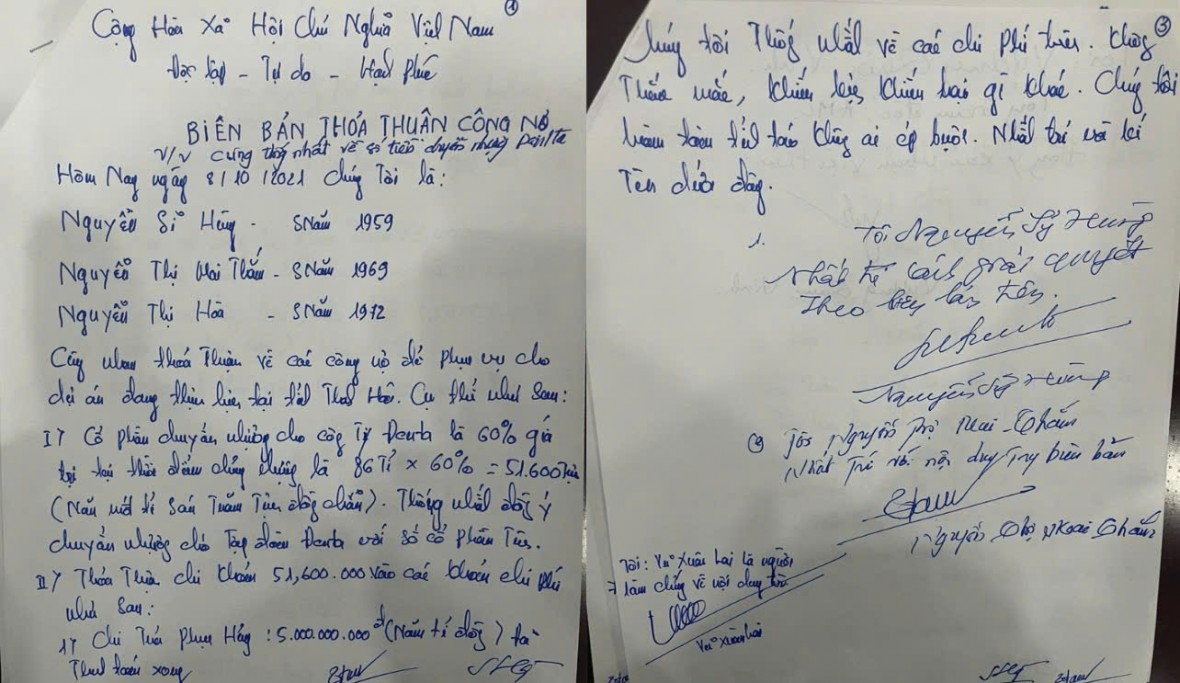 ①
Cộng Hòa Xã Hội Chủ Nghĩa Việt Nam
Độc lập - Tự do - Hạnh phúc
BIÊN BẢN THỎA THUẬN CÔNG NỢ
V/v cùng thống nhất về số tiền chuyển nhượng
Hôm Nay ngày 8/10/2021 chúng Tôi là:
Nguyễn Sĩ Hùng - SNăm 1959
Nguyễn Thị Mai Thắm - SNăm 1969
Nguyễn Thị Hòa - SNăm 1972
Cùng nhau thỏa thuận về các công nợ để phục vụ cho
dự án đang thực hiện tại
Cụ thể như sau:
I) Cổ phần chuyển nhượng cho công Ty Denta là 60% giá
trị tại thời điểm chứng là 86 Tỉ x 60% = 51.600
(Năm mốt tỉ Sáu Trăm Triệu đồng chẵn). Thống nhất đồng ý
chuyển nhượng cho Tập đoàn Denta với số cổ phần Trên.
II) Thỏa Thuận chi khoản 51,600.000 vào các khoản chi phí
như Sau:
1) Chi Trả : 5.000.000.000đ (Năm tỉ đồng) đã
Thanh toán xong
③
Chúng tôi Thống nhất về các chi Phí trên. Không
Thắc mắc, khiếu kiện khiếu nại gì khác. Chúng tôi
hoàn toàn tỉnh táo không ai ép buộc. Nhất trí và kí
Tên dưới đây.
1. Tôi Nguyễn Sỹ Hùng
Nhất trí cách giải quyết
Theo biên bản trên.
Nguyễn Sỹ Hùng
(2) Tôi Nguyễn Thị Mai Thắm
Nhất Trí với nội dung biên bản
Nguyễn Thị Mai Thắm
Tôi: Vũ Xuân Lai là người
làm chứng về nội dung trên
Vũ Xuân Lai